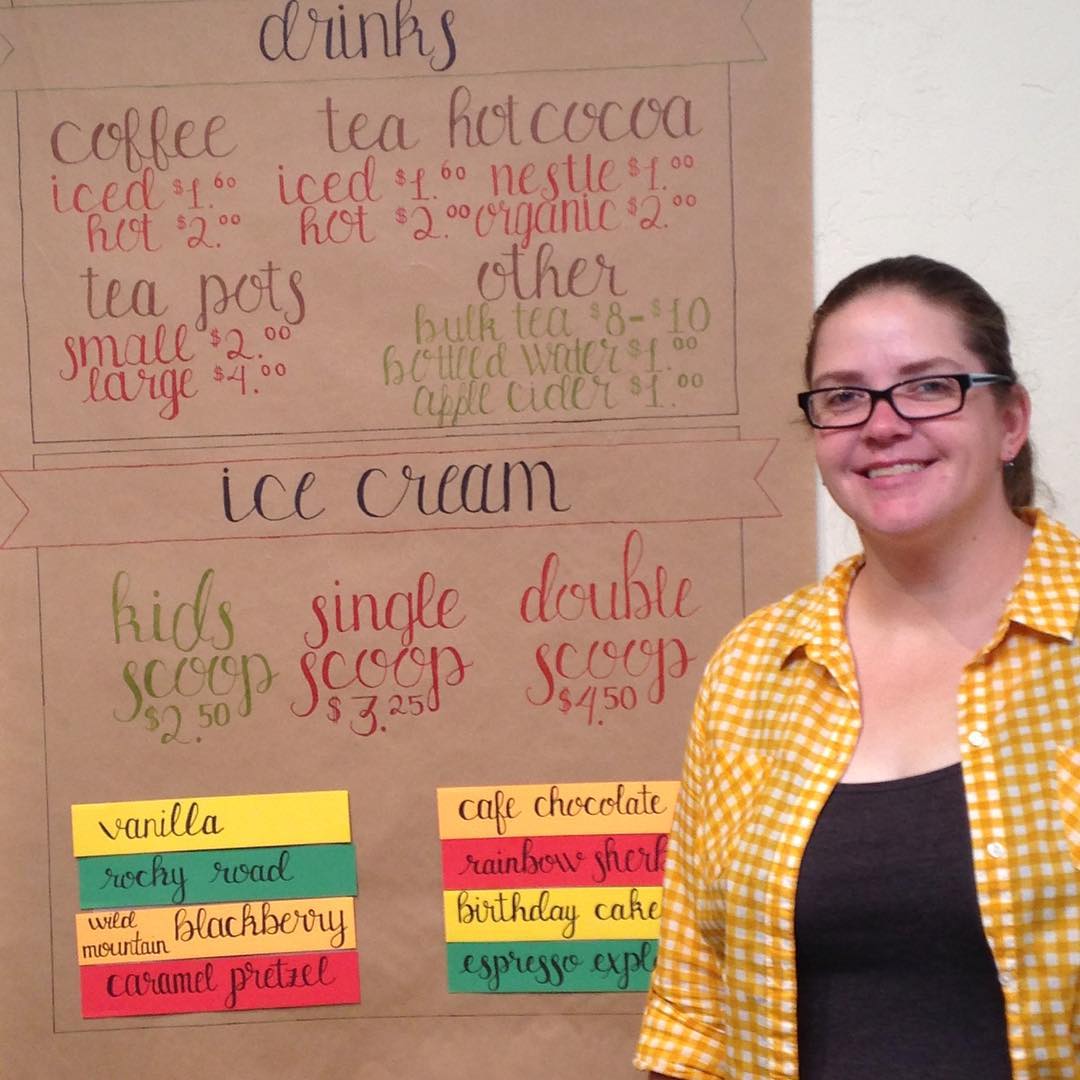 drinks
coffee
iced $1.60
hot $2.00
tea
iced $1.60
hot $2.00
hot cocoa
nestle $1.00
organic $2.00
tea pots
small $2.00
large $4.00
other
bulk tea $8-$10
bottled water $1.00
apple cider $1.00
ice cream
kids
scoop
$2.50
single
scoop
$3.25
double
scoop
$4.50
vanilla
rocky road
wild
mountain blackberry
caramel pretzel
cafe chocolate
rainbow
birthday cake
espresso